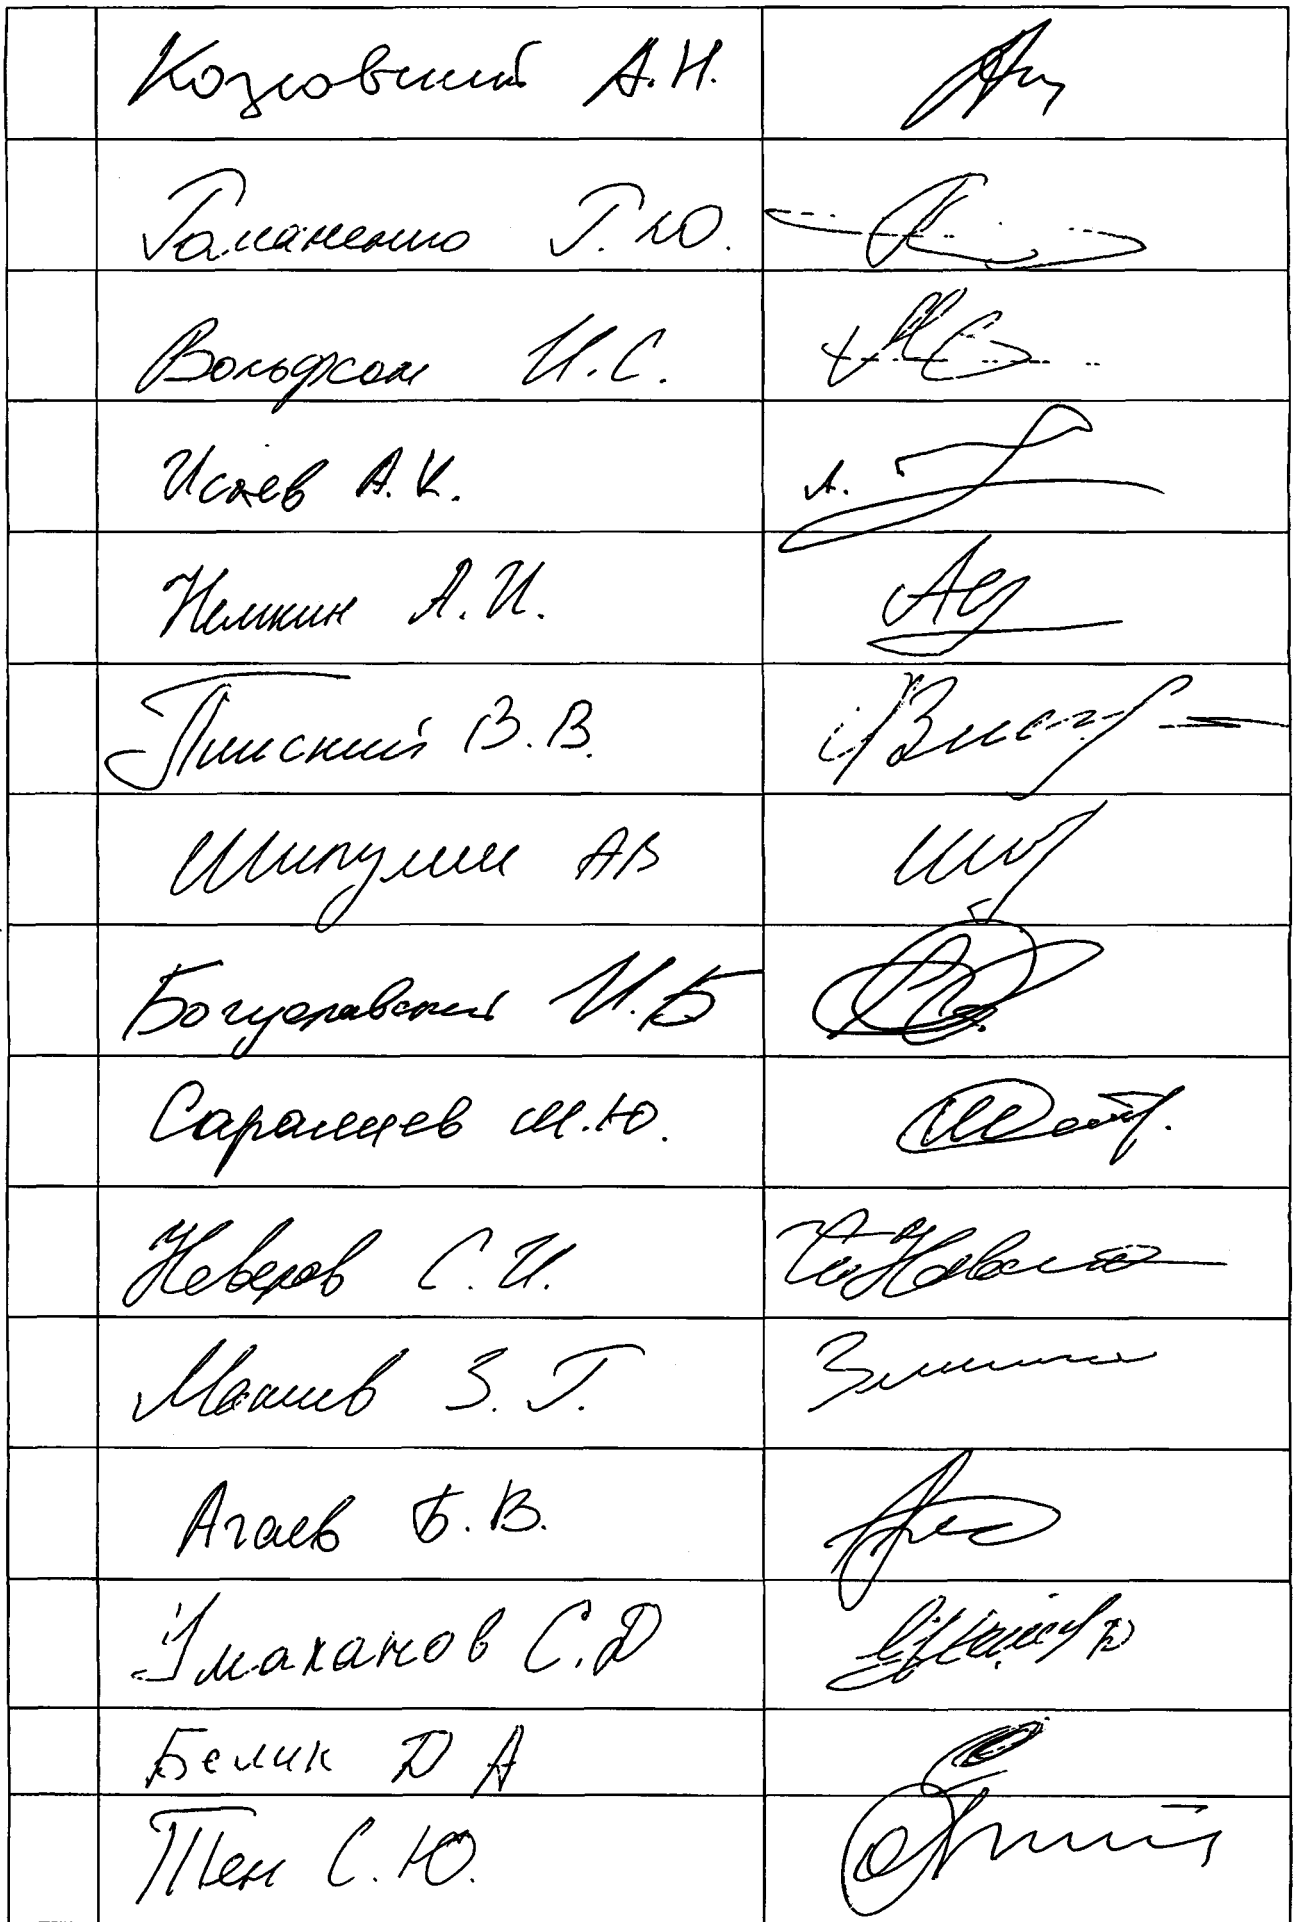 Козловский А.Н.
Романенко Р.Ю.
Вольфсон И.С.
Исаев А.К.
Немкин А.И.
Пинский В.В.
Шипулин АВ
Богуславский И.Б
Саралиев Ш.Ю.
Неверов С.И.
Мациев З.Г.
Агаев Б.В.
Умаханов С.Д
Белик Д А
Тен С.Ю.